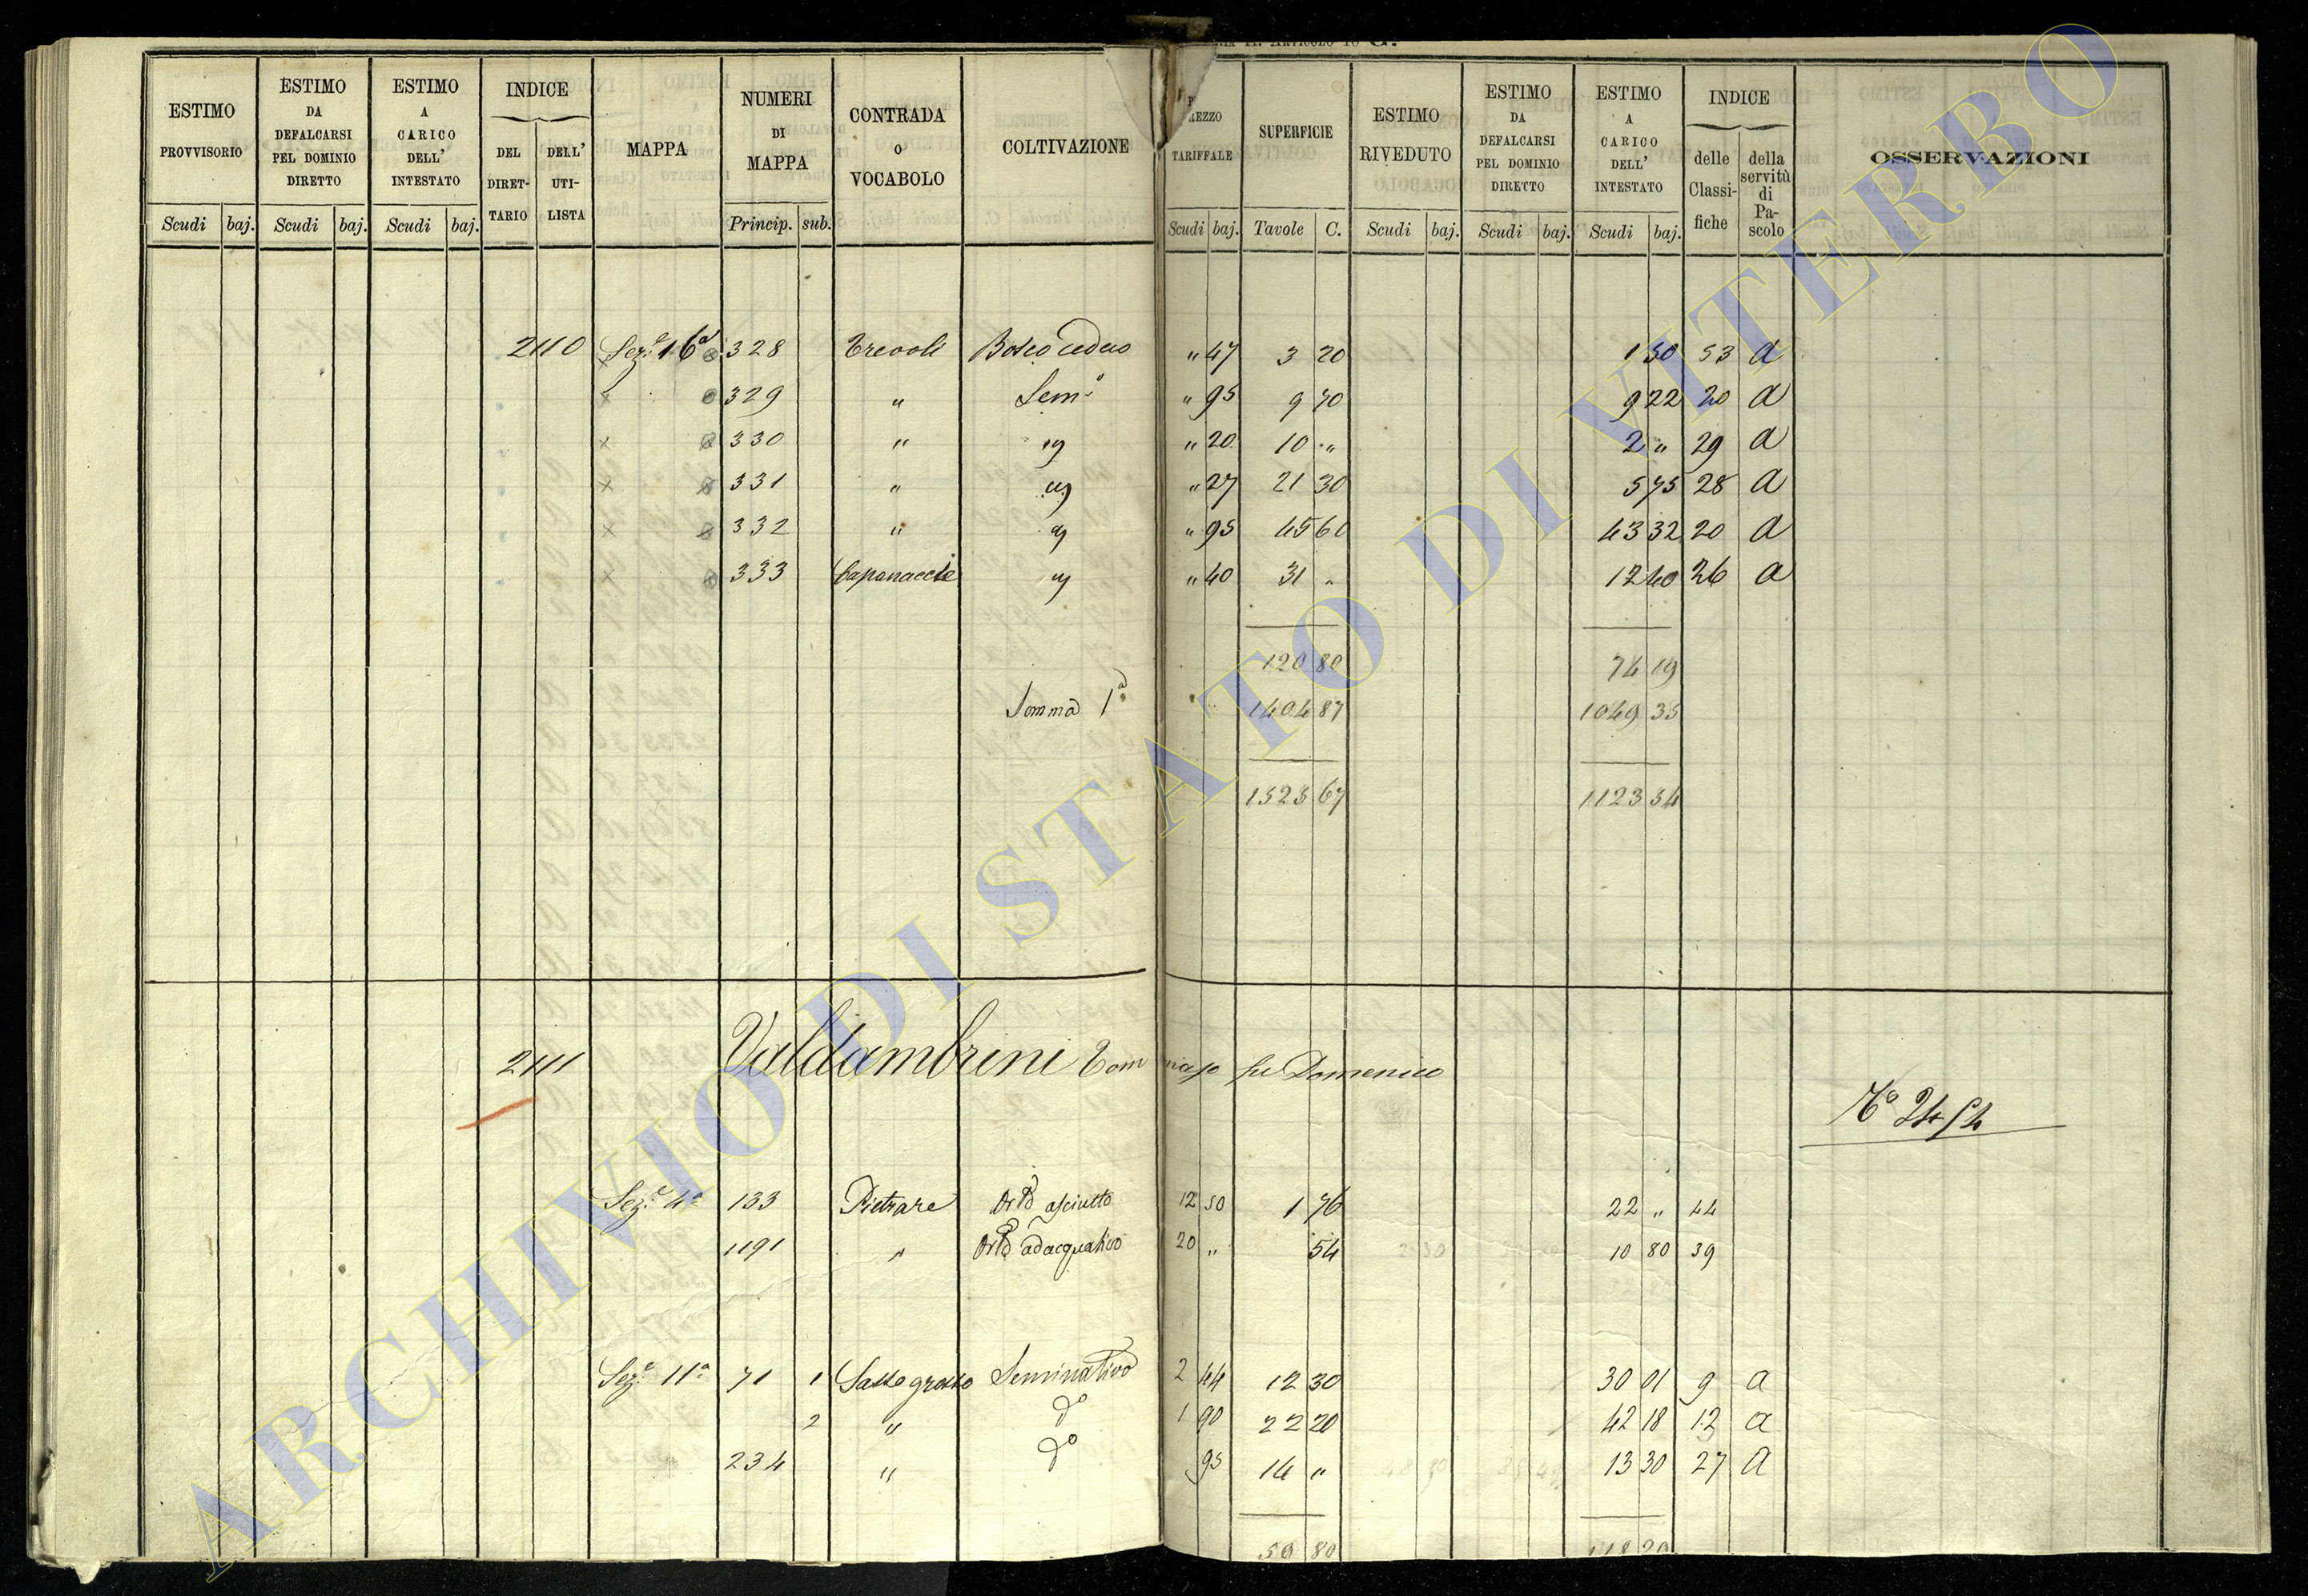 ESTIMO PROVVISORIO | ESTIMO DA DEFALCARSI PEL DOMINIO DIRETTO | ESTIMO A CARICO DELL' INTESTATO | INDICE DEL DIRETTARIO | DELL' UTILISTA | MAPPA | NUMERI DI MAPPA | CONTRADA O VOCABOLO | COLTIVAZIONE | PREZZO TARIFFALE | SUPERFICIE | ESTIMO RIVEDUTO | ESTIMO DA DEFALCARSI PEL DOMINIO DIRETTO | ESTIMO A CARICO DELL' INTESTATO | INDICE delle Classifiche | della servitù di Pascolo | OSSERVAZIONI
Scudi baj. Scudi baj. Scudi baj. Princip. sub. Scudi baj. Tavole C. Scudi baj. Scudi baj. Scudi baj.
2110 Sez.e 16a 328 Trevoli Bosco ceduo " 47 3 20 1 50 53 a
329 " Sem.o " 95 9 70 9 22 20 a
330 " " 20 10 " 2 " 29 a
331 " " 27 21 30 5 75 28 a
332 " " 95 45 60 43 32 20 a
333 Capanaccie " 40 31 " 12 40 26 a
120 80 74 19
Somma 1a 1404 87 1049 35
1523 67 1123 54
2111 Valdambrini Tommaso fu Domenico
No 2454
Sez.e 4a 133 Pietrare Orto asciutto 12 50 1 76 22 " 44
1191 " Orto adacquativo 20 " 54 10 80 39
Sez.e 11a 71 1 Sasso grosso Seminativo 2 44 12 30 30 01 9 a
2 " do 1 90 22 20 42 18 12 a
234 " do 95 14 " 13 30 27 a
50 80 118 29
ARCHIVIO DI STATO DI VITERBO